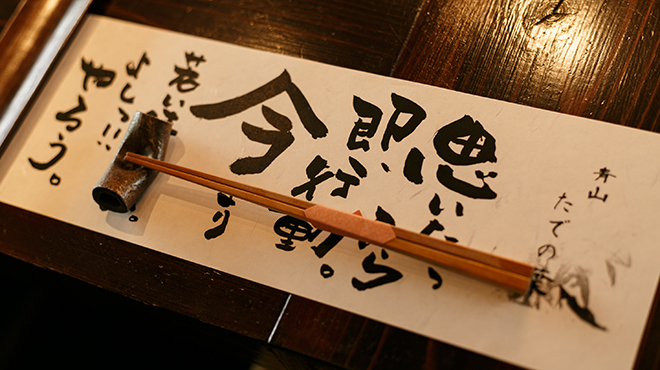 青山
たでの
思いたっ
ら
即、行動。
今
より
若い
よしっ!!
やろう。